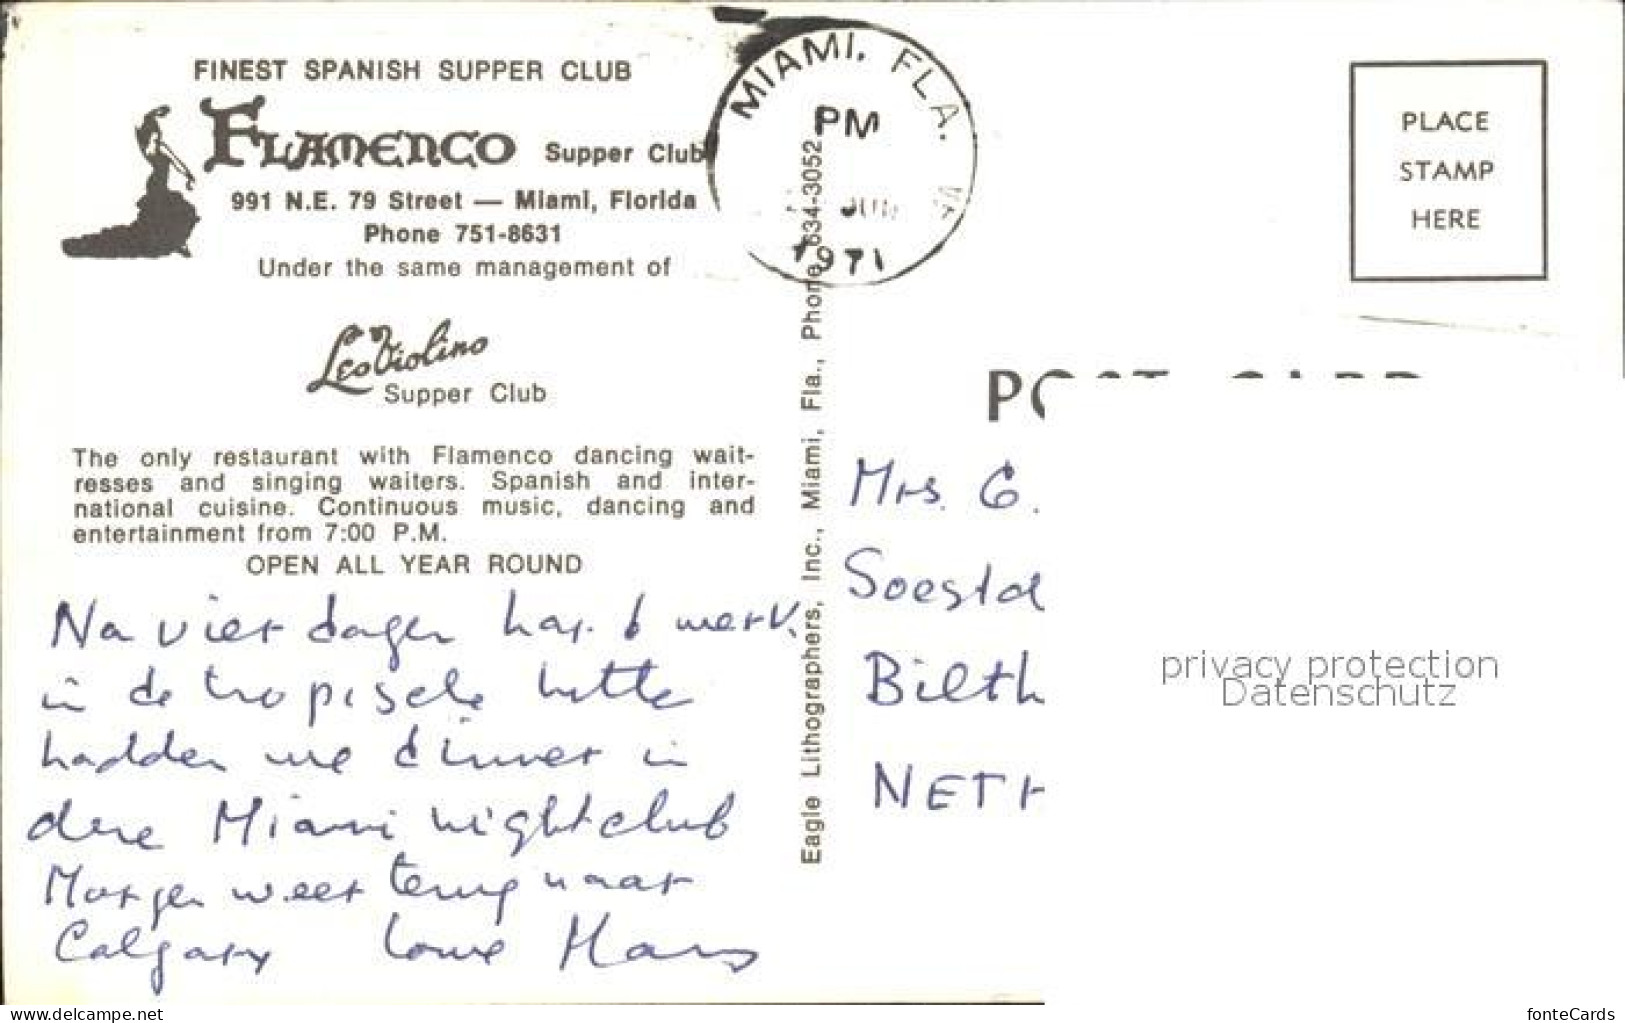 FINEST SPANISH SUPPER CLUB
FLAMENCO Supper Club
991 N.E. 79 Street — Miami, Florida
Phone 751-8631
Under the same management of
Leo Violino
Supper Club
The only restaurant with Flamenco dancing wait-
resses and singing waiters. Spanish and inter-
national cuisine. Continuous music, dancing and
entertainment from 7:00 P.M.
OPEN ALL YEAR ROUND
Na vier dagen werk
in de tropische hitte
hadden we dinner in
deze Miami nightclub
Morgen weer terug naar
Calgary Hans
MIAMI, FLA.
PM
JUN
1971
Eagle Lithographers, Inc., Miami, Fla., Phone 634-3052
PLACE
STAMP
HERE
POST CARD
Mrs. G.
Soestd
Bilth
NETH
privacy protection
Datenschutz
www.delcampe.net
fonteCards